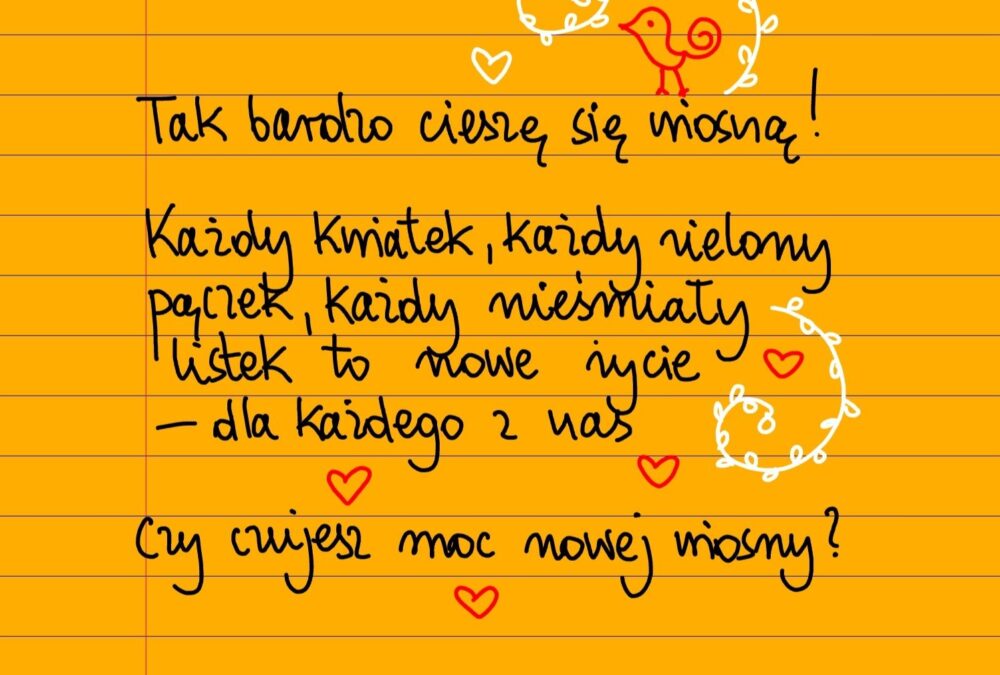 Tak bardzo cieszę się wiosną!
Każdy kwiatek, każdy zielony
pączek, każdy nieśmiały
listek to nowe życie
– dla każdego z nas
Czy czujesz moc nowej wiosny?